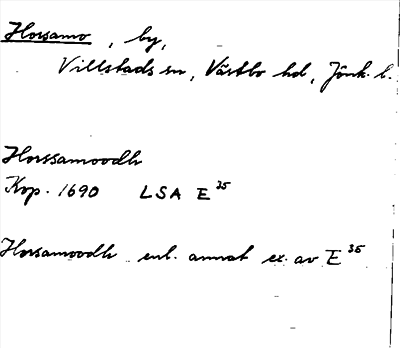 Horsamo, by,
Villstads sn, Västbo hd, Jönk. l.
Horssamoodh
Kop. 1690 LSA E 35
Horsamoodh enl. annat ex. av E 35